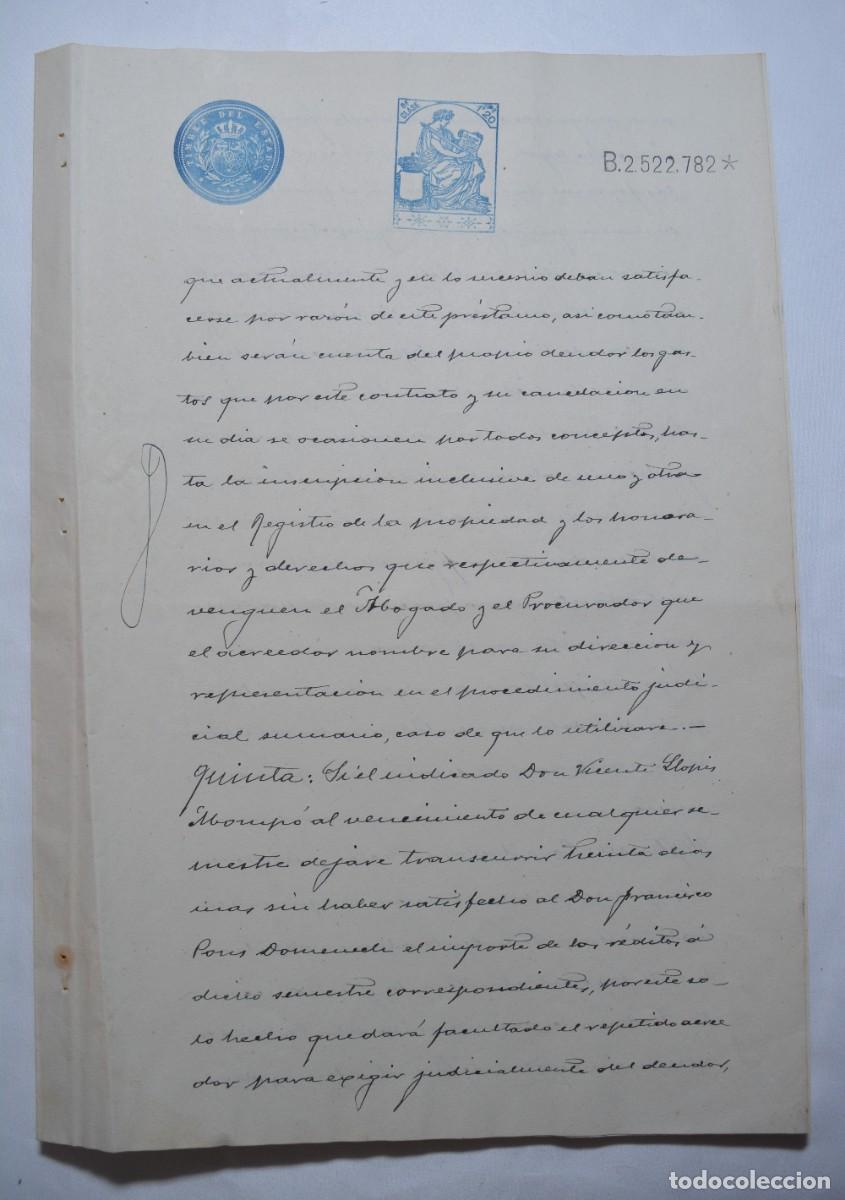 TIMBRE DEL ESTADO
CLASE
1'20
B.2.522.782*
que actualmente y en lo sucesivo deban satisfa-
cerse por razón de este préstamo, asi como tam-
bien serán cuenta del propio deudor los gas-
tos que por este contrato y su cancelacion en
su dia se ocasionen por todos conceptos, has-
ta la inscripcion inclusive de uno y otra
en el Registro de la propiedad y los honora-
rios y derechos que respectivamente de-
venguen el Abogado y el Procurador que
el acreedor nombre para su direccion y
representacion en el procedimiento judi-
cial sumario, caso de que lo utilizara.—
Quinta: Si el indicado Don Vicente Llopis
Mompó al vencimiento de cualquier se-
mestre dejare transcurrir treinta dias
mas sin haber satisfecho al Don Francisco
Pons Domenech el importe de los réditos á
dicho semestre correspondientes, por este so-
lo hecho quedará facultado el repetido acree
dor para exigir judicialmente del deudor,
todocoleccion